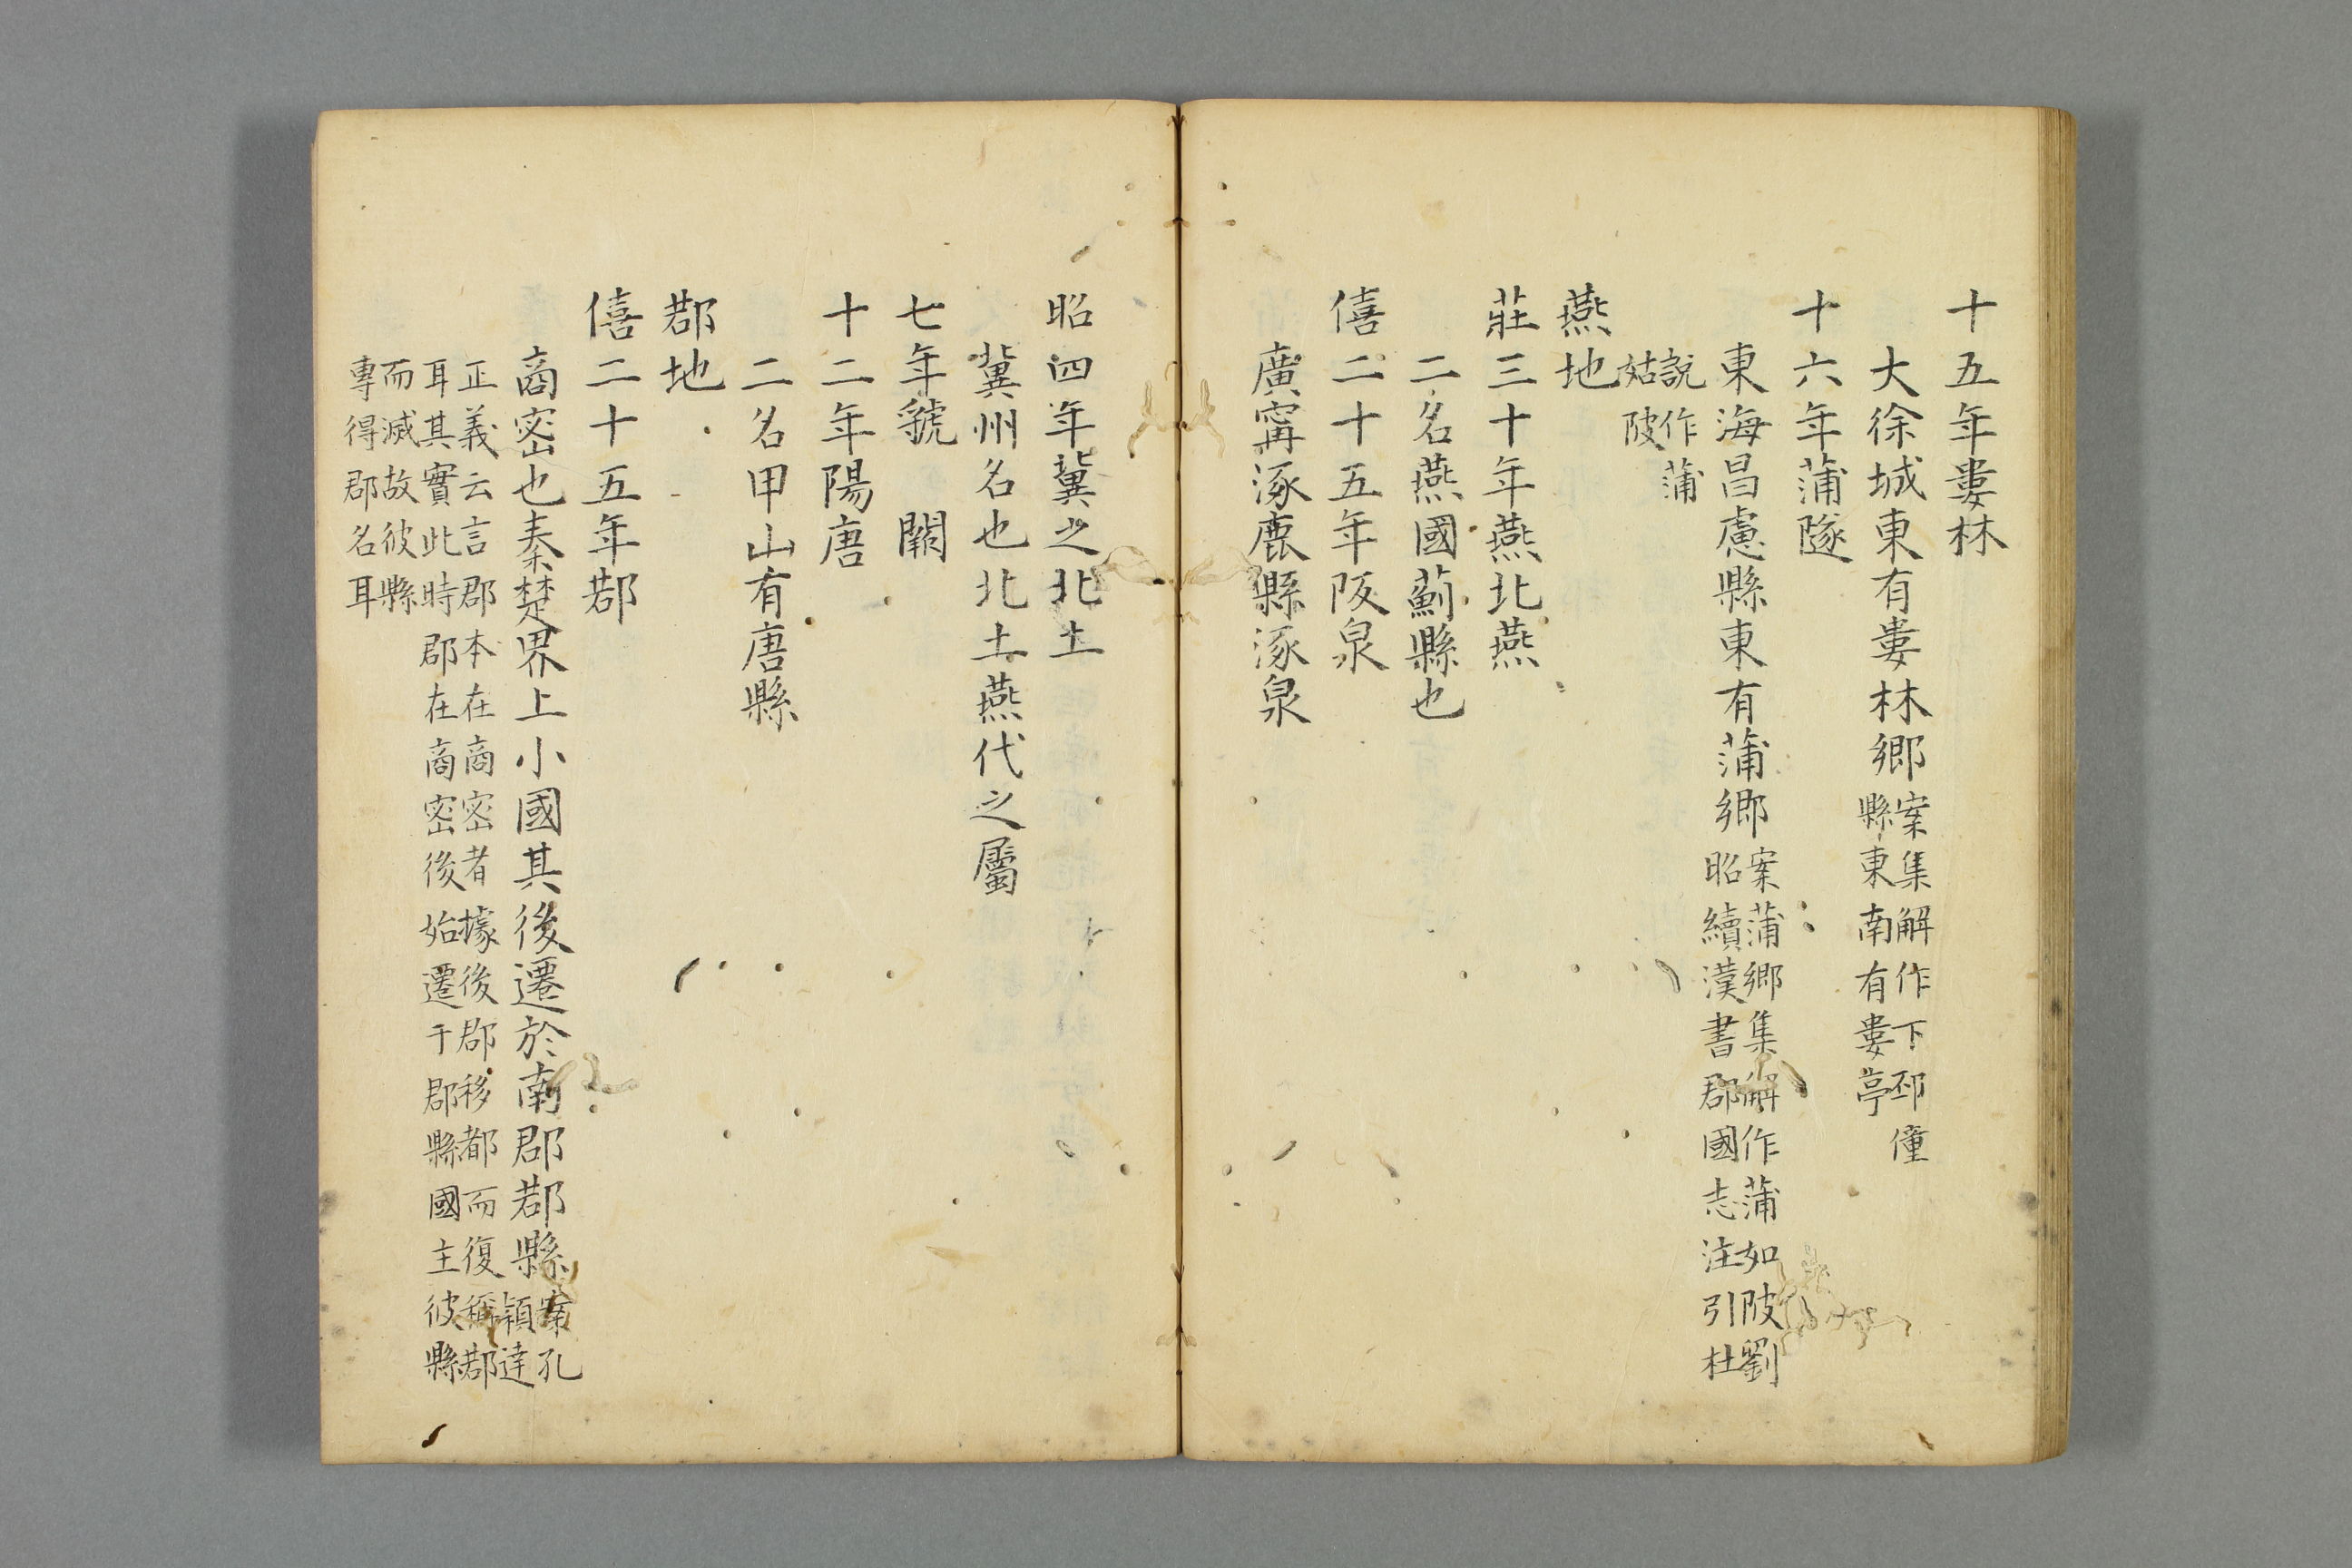 十五年婁林
大徐城東有婁林鄉案集解作下邳僮
縣東南有婁亭
十六年蒲隧
東海昌慮縣東有蒲鄉案蒲鄉集解作蒲如陂劉
昭續漢書郡國志注引杜
說作蒲
姑陂
燕地
莊三十年燕北燕
二名燕國薊縣也
僖二十五年阪泉
廣甯涿鹿縣涿泉
昭四年冀之北土
冀州名也北土燕代之屬
七年虢 闕
十二年陽唐
二名甲山有唐縣
鄀地
僖二十五年鄀
商密也秦楚界上小國其後遷於南郡鄀縣案孔
穎達
正義云言郡本在商密者據後郡移都而復稱鄀
耳其實此時郡在商密後始遷于郡縣國主彼縣
而滅故彼縣
專得郡名耳